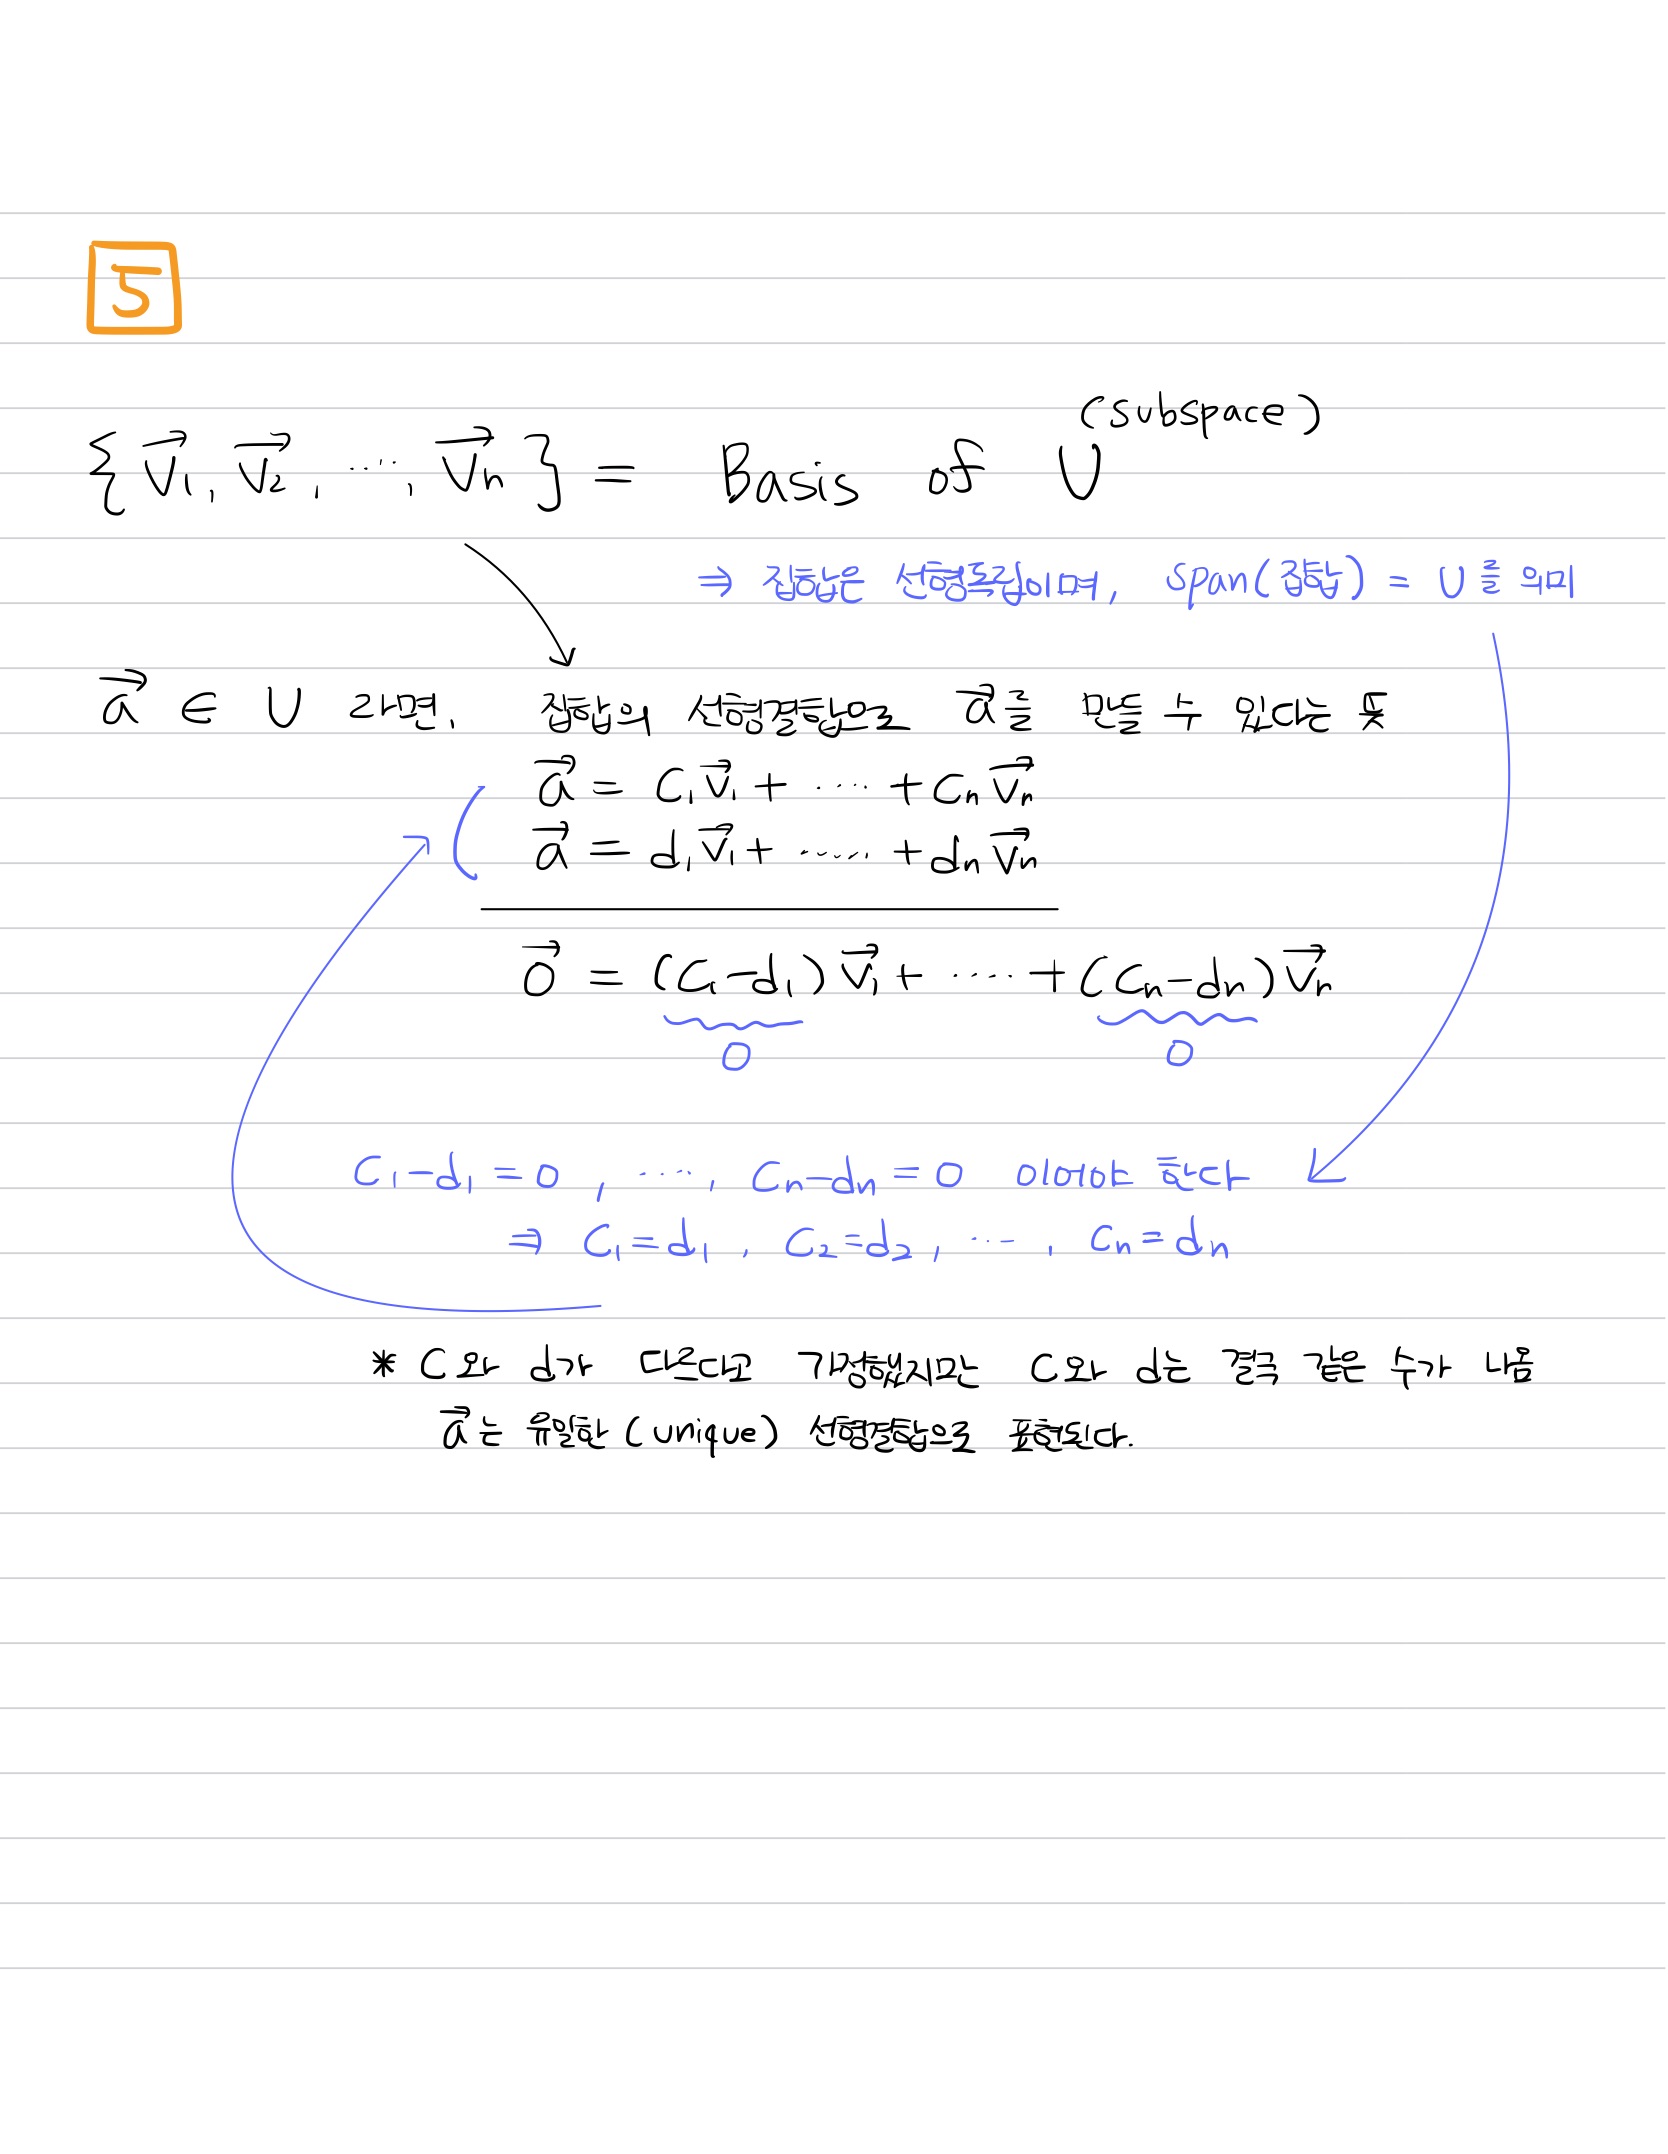 5
(subspace)
{ v⃗₁, v⃗₂, ⋯, v⃗ₙ } = Basis of U
⇒ 집합은 선형독립이며, span(집합) = U를 의미
a⃗ ∈ U 라면, 집합의 선형결합으로 a⃗를 만들 수 있다는 뜻
a⃗ = C₁v⃗₁ + ⋯⋯ + Cₙv⃗ₙ
a⃗ = d₁v⃗₁ + ⋯⋯ + dₙv⃗ₙ
0⃗ = (C₁-d₁)v⃗₁ + ⋯⋯ + (Cₙ-dₙ)v⃗ₙ
0 0
C₁-d₁ = 0, ⋯⋯, Cₙ-dₙ = 0 이어야 한다
⇒ C₁=d₁, C₂=d₂, ⋯, Cₙ=dₙ
* C와 d가 다르다고 가정했지만 C와 d는 결국 같은 수가 나옴
a⃗는 유일한 (unique) 선형결합으로 표현된다.